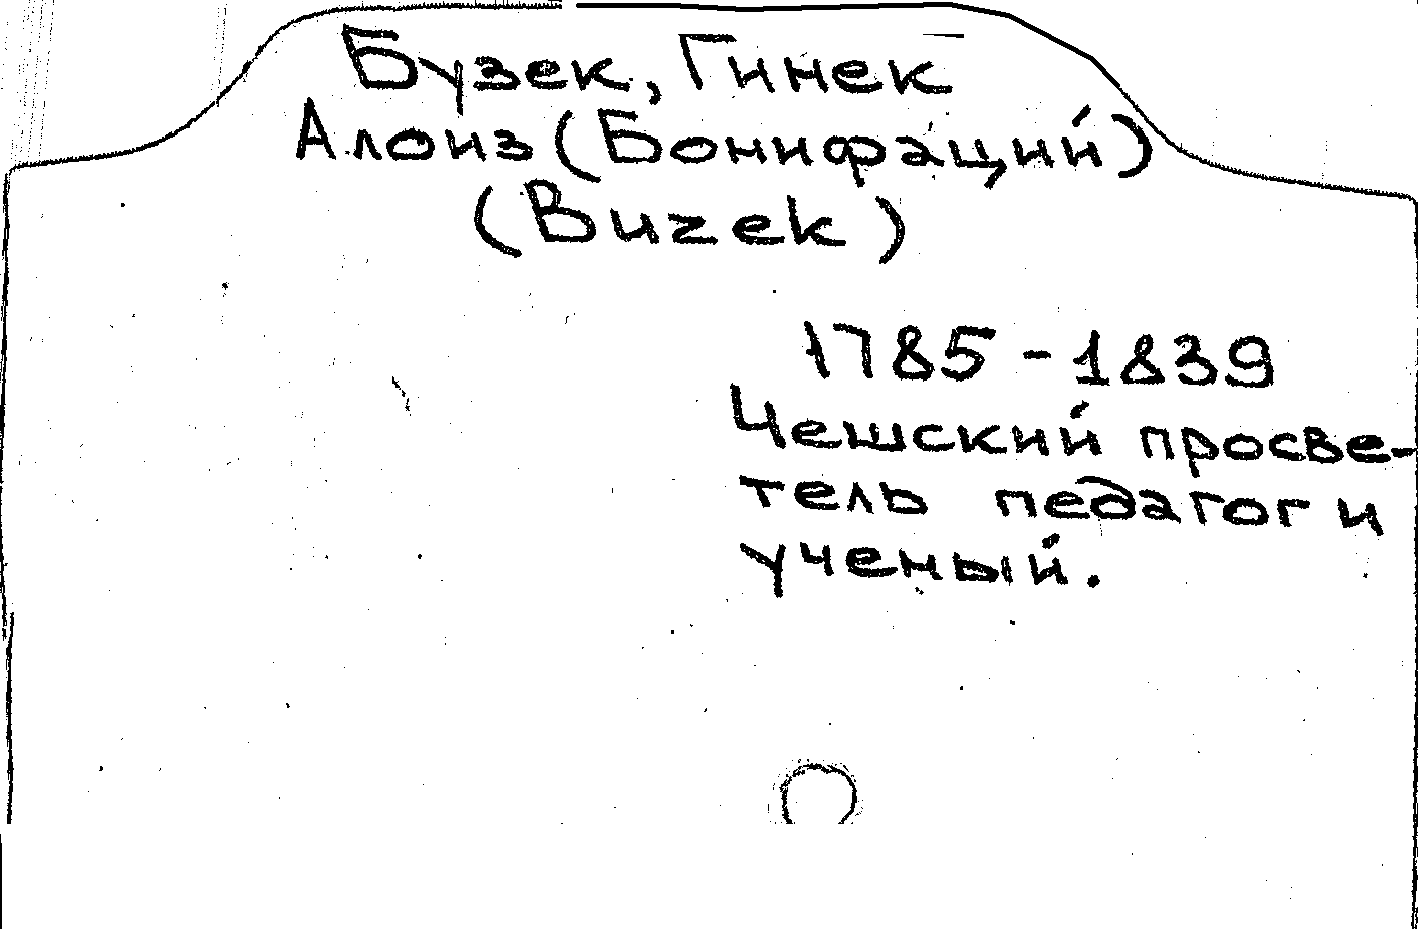 Бузек, Гинек
Алоиз (Бонифаций)
(Buzek)
1785-1839
Чешский просве-
тель педагог и
ученый.